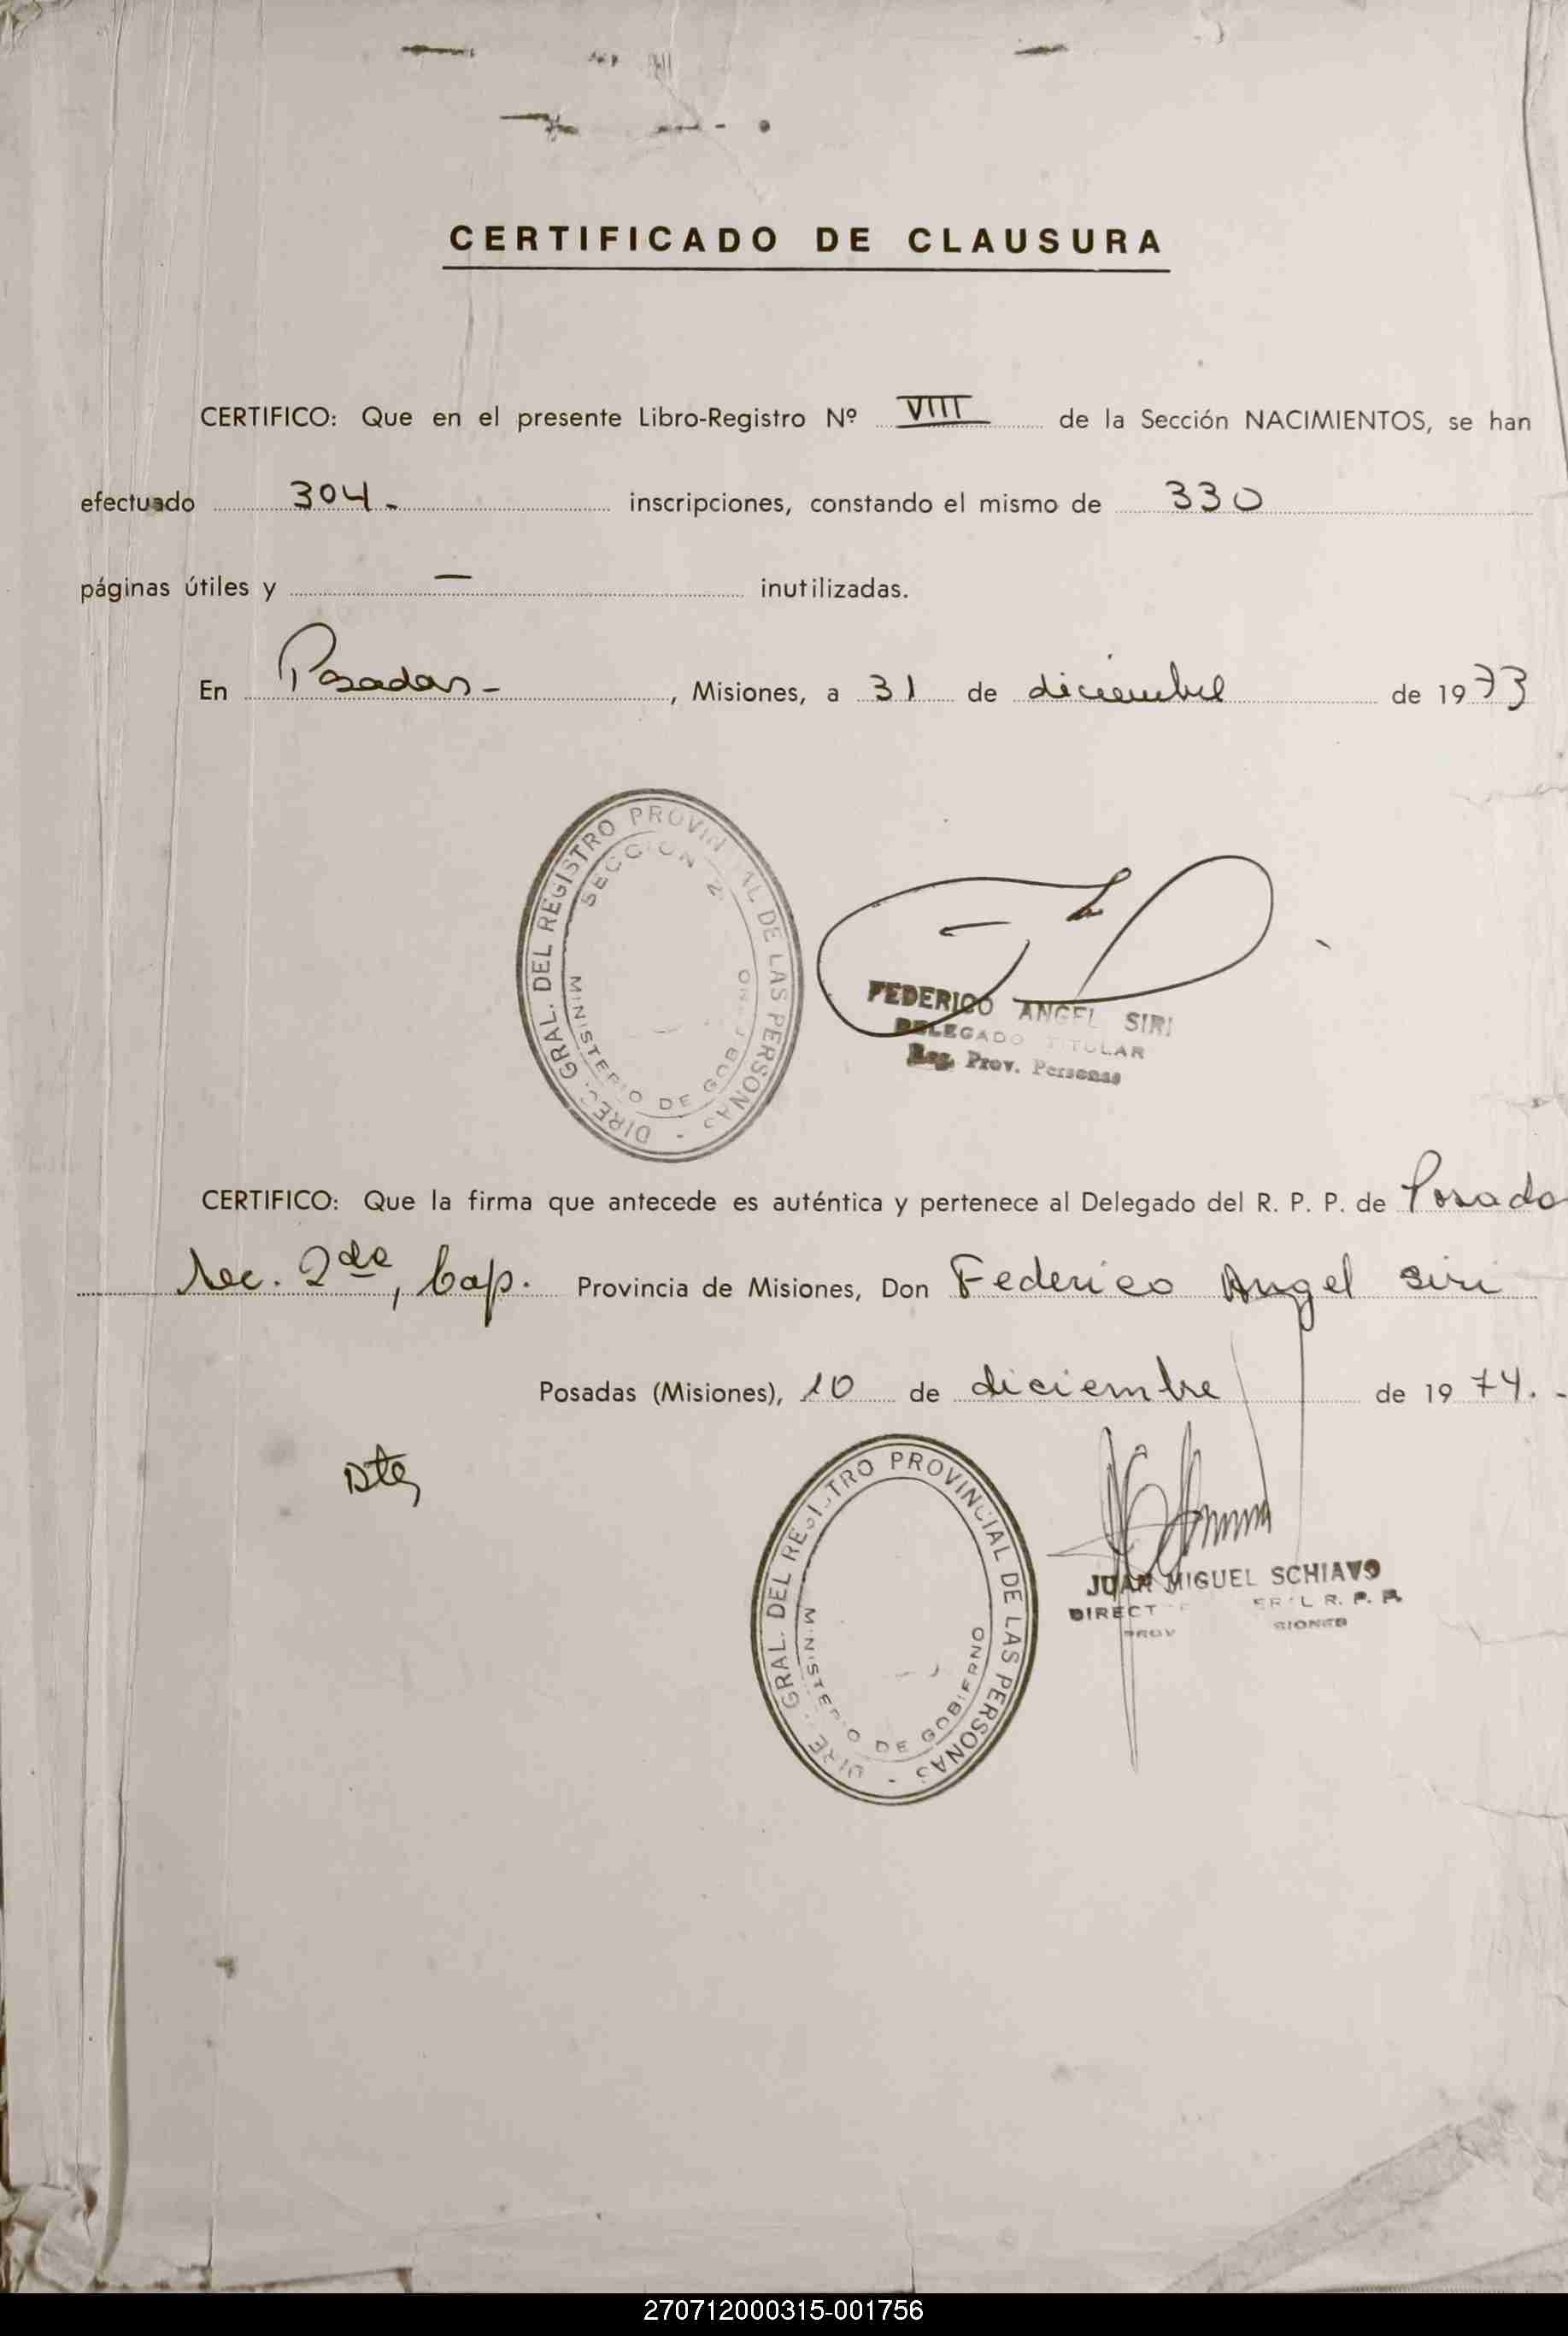 CERTIFICADO DE CLAUSURA
CERTIFICO: Que en el presente Libro-Registro Nº VIII de la Sección NACIMIENTOS, se han
efectuado 304.- inscripciones, constando el mismo de 330
páginas útiles y — inutilizadas.
En Posadas-, Misiones, a 31 de diciembre de 1973
DIREC. GRAL. DEL REGISTRO PROVINCIAL DE LAS PERSONAS -
SECCION 2
MINISTERIO DE GOBIERNO
FEDERICO ANGEL SIRI
DELEGADO TITULAR
Reg. Prov. Personas
CERTIFICO: Que la firma que antecede es auténtica y pertenece al Delegado del R. P. P. de Posada
Sec. 2da, Cap. Provincia de Misiones, Don Federico Angel Siri
Posadas (Misiones), 10 de diciembre de 1974.-
DIREC. GRAL. DEL REGISTRO PROVINCIAL DE LAS PERSONAS -
MINISTERIO DE GOBIERNO
JUAN MIGUEL SCHIAVO
R. P. P.
270712000315-001756